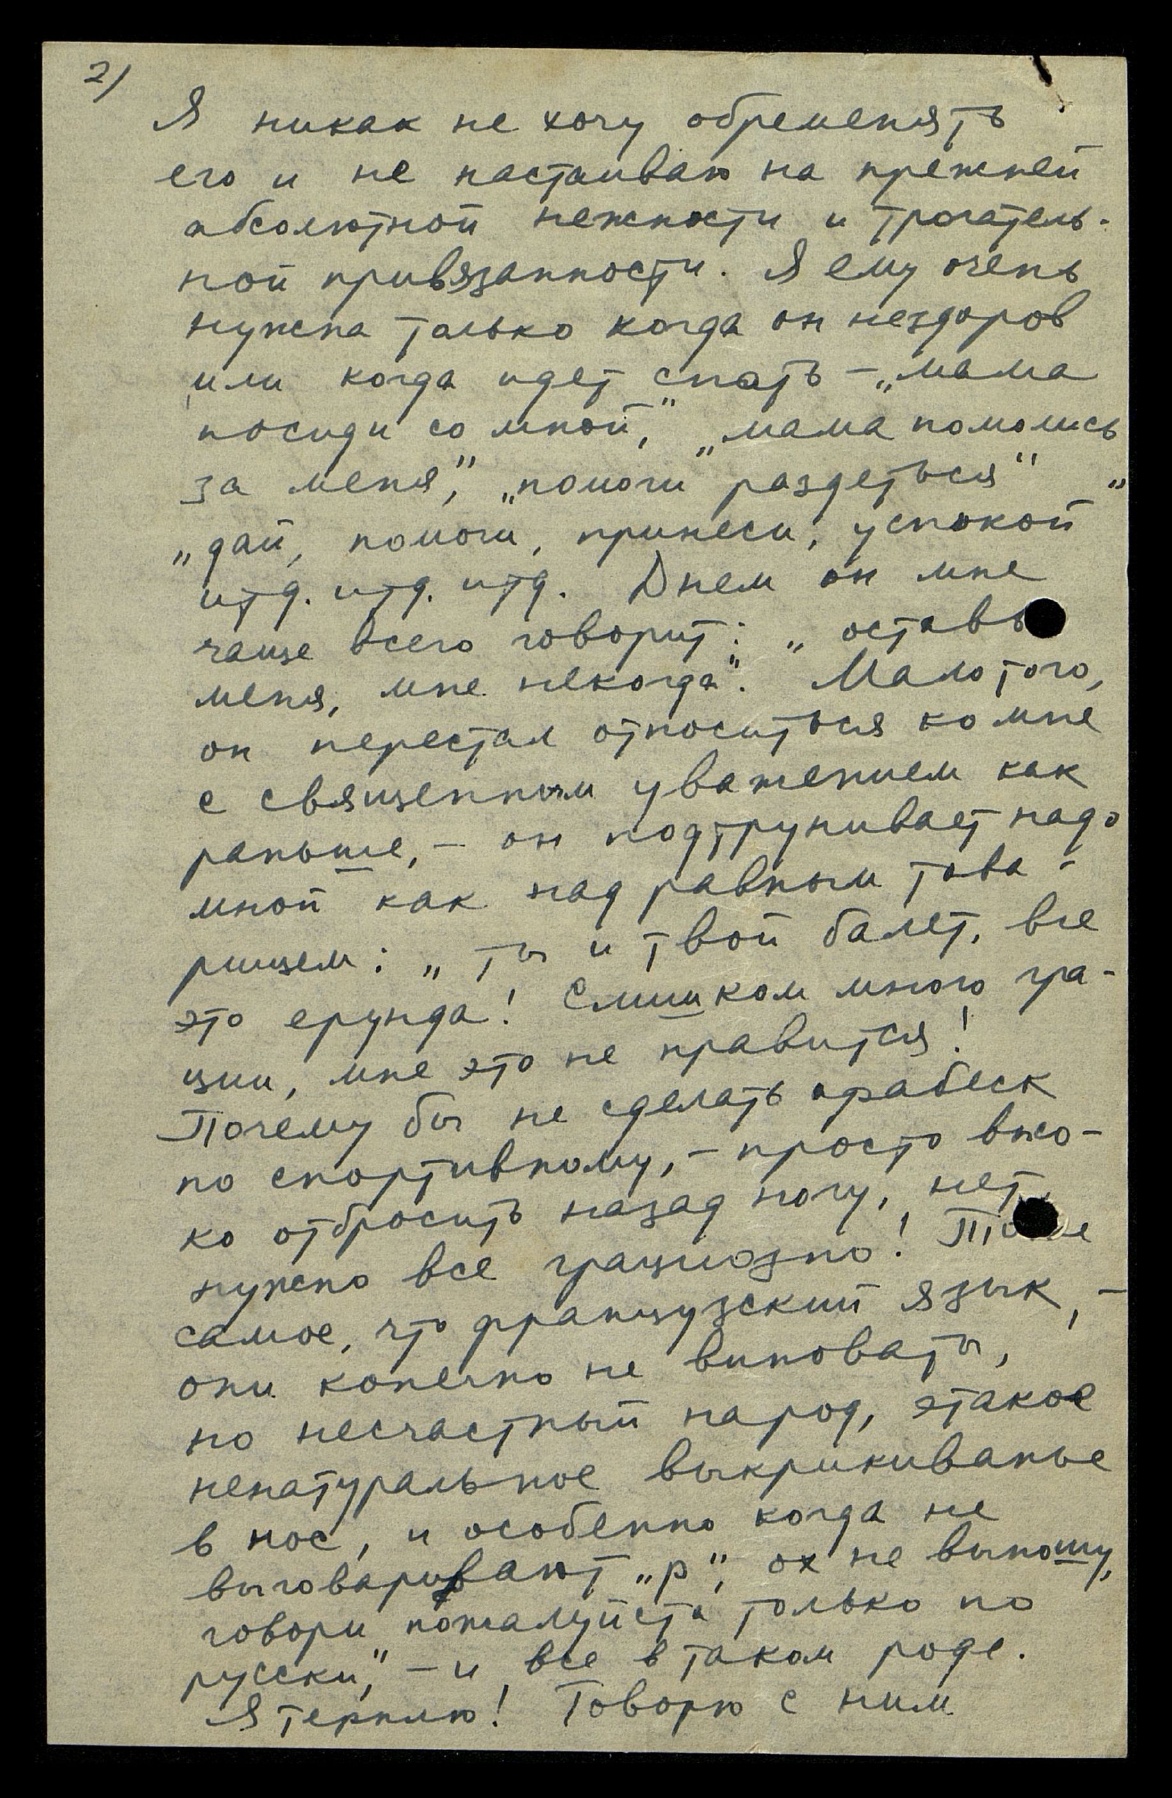 2)
Я никак не хочу обременять
его и не настаиваю на прежней
абсолютной нежности и трогатель-
ной привязанности. Я ему очень
нужна только когда он нездоров
или когда идет спать – „мама
посиди со мной," „мама помолись
за меня," „помоги раздеться" „
„дай, помоги, принеси, успокой
итд. итд. итд. Днем он мне
чаще всего говорит: „оставь
меня, мне некогда". Мало того,
он перестал относиться ко мне
с священным уважением как
раньше, – он подтрунивает надо
мной как над равным това-
рищем: „ты и твой балет, все
это ерунда! Слишком много гра-
ции, мне это не нравится!
Почему бы не сделать арабеск
по спортивному, – просто высо-
ко отбросить назад ногу, нет
нужно все грациозно! Тоже
самое, что французский язык, –
они конечно не виноваты,
но несчастный народ, этакое
ненатуральное выкрикиванье
в нос, и особенно когда не
выговаривают „р", ох не выношу,
говори пожалуйста только по
русски," – и все в таком роде.
Я терплю! Говорю с ним